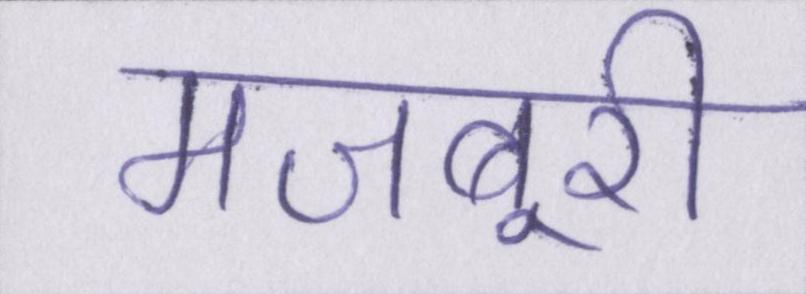 मजबूरी